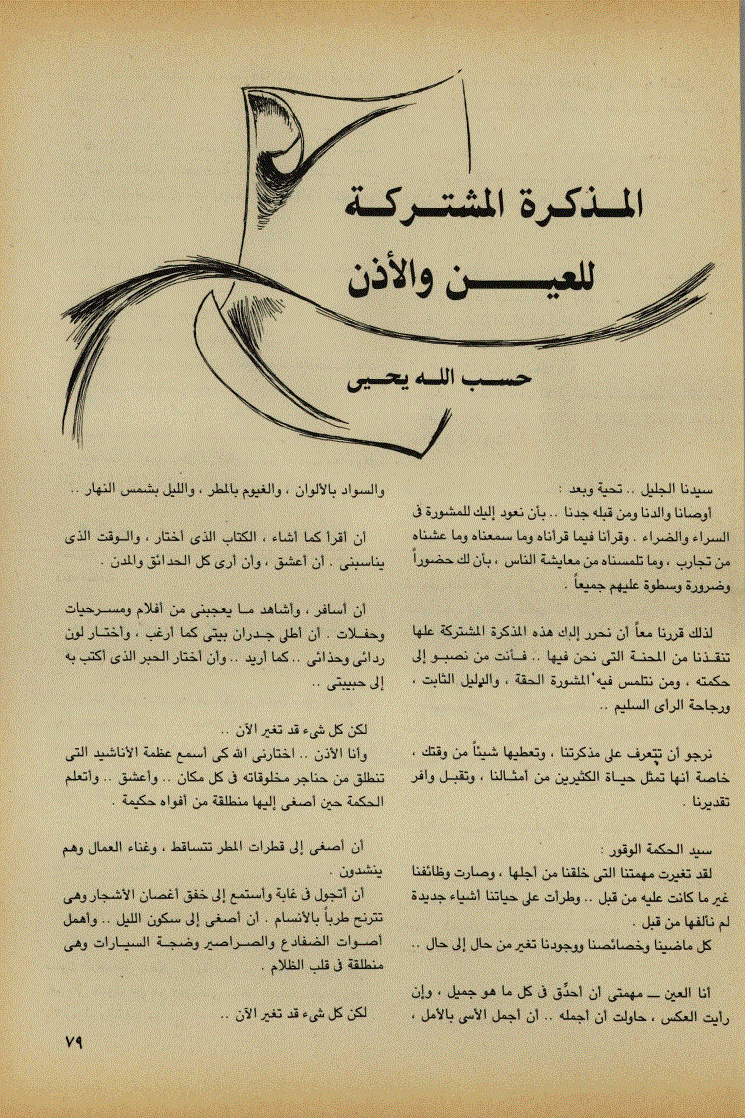 المذكرة المشتركة
للعين والأذن
حسب الله يحيى
سيدنا الجليل .. تحية وبعد :
أوصانا والدنا ومن قبله جدنا .. بأن نعود إليك للمشورة فى
السراء والضراء . وقرأنا فيما قرأناه وما سمعناه وما عشناه
من تجارب ، وما تلمسناه من معايشة الناس ، بأن لك حضوراً
وضرورة وسطوة عليهم جميعاً .
لذلك قررنا معاً أن نحرر إليك هذه المذكرة المشتركة علها
تنقذنا من المحنة التى نحن فيها .. فأنت من نصبو إلى
حكمته ، ومن نتلمس فيه المشورة الحقة ، والدليل الثابت ،
ورجاحة الرأى السليم ..
نرجو أن تتعرف على مذكرتنا ، وتعطيها شيئاً من وقتك ،
خاصة أنها تمثل حياة الكثيرين من أمثالنا ، وتقبل وافر
تقديرنا .
سيد الحكمة الوقور :
لقد تغيرت مهمتنا التى خلقنا من أجلها ، وصارت وظائفنا
غير ما كانت عليه من قبل .. وطرأت على حياتنا أشياء جديدة
لم نألفها من قبل .
كل ماضينا وخصائصنا ووجودنا تغير من حال إلى حال ..
أنا العين — مهمتى أن أحدِّق فى كل ما هو جميل ، وإن
رأيت العكس ، حاولت أن أجمله .. أن أجمل الأسى بالأمل ،
والسواد بالألوان ، والغيوم بالمطر ، والليل بشمس النهار ..
أن أقرأ كما أشاء ، الكتاب الذى أختار ، والوقت الذى
يناسبنى . أن أعشق ، وأن أرى كل الحدائق والمدن .
أن أسافر ، وأشاهد ما يعجبنى من أفلام ومسرحيات
وحفلات . أن أطلى جدران بيتى كما أرغب ، وأختار لون
ردائى وحذائى .. كما أريد .. وأن أختار الحبر الذى أكتب به
إلى حبيبتى ..
لكن كل شىء قد تغير الآن ..
وأنا الأذن .. اختارنى الله كى أسمع عظمة الأناشيد التى
تنطلق من حناجر مخلوقاته فى كل مكان .. وأعشق .. وأتعلم
الحكمة حين أصغى إليها منطلقة من أفواه حكيمة .
أن أصغى إلى قطرات المطر تتساقط ، وغناء العمال وهم
ينشدون .
أن أتجول فى غابة وأستمع إلى خفق أغصان الأشجار وهى
تترنح طرباً بالأنسام . أن أصغى إلى سكون الليل .. وأهمل
أصوات الضفادع والصراصير وضجة السيارات وهى
منطلقة فى قلب الظلام .
لكن كل شىء قد تغير الآن ..
٧٩